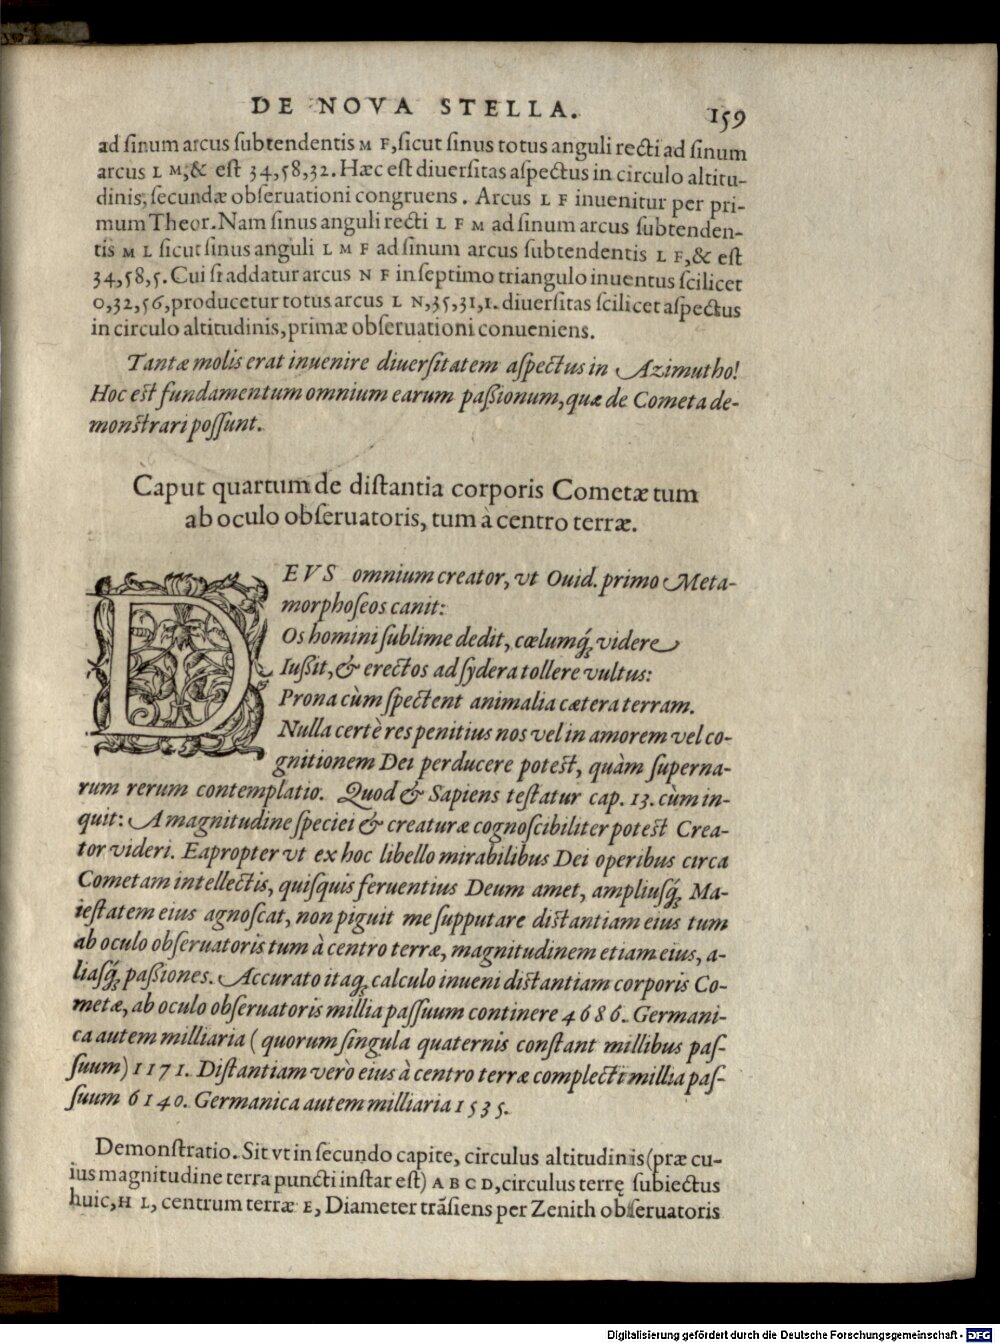 DE NOVA STELLA. 159
ad ſinum arcus ſubtendentis M F, ſicut ſinus totus anguli recti ad ſinum
arcus L M, & eſt 34,58,32. Hæc eſt diuerſitas aſpectus in circulo altitu-
dinis, ſecundæ obſeruationi congruens. Arcus L F inuenitur per pri-
mum Theor. Nam ſinus anguli recti L F M ad ſinum arcus ſubtenden-
tis M L ſicut ſinus anguli L M F ad ſinum arcus ſubtendentis L F, & eſt
34,58,5. Cui ſi addatur arcus N F in ſeptimo triangulo inuentus ſcilicet
0,32,56, producetur totus arcus L N, 35,31,1. diuerſitas ſcilicet aſpectus
in circulo altitudinis, primæ obſeruationi conueniens.
Tantæ molis erat inuenire diuerſitatem aſpectus in Azimutho!
Hoc eſt fundamentum omnium earum paßionum, quæ de Cometa de-
monſtrari poſſunt.
Caput quartum de diſtantia corporis Cometæ tum
ab oculo obſeruatoris, tum à centro terræ.
DEVS omnium creator, vt Ouid. primo Meta-
morphoſeos canit:
Os homini ſublime dedit, cœlumq́; videre
Iußit, & erectos ad ſydera tollere vultus:
Prona cùm ſpectent animalia cætera terram.
Nulla certè res penitius nos vel in amorem vel co-
gnitionem Dei perducere poteſt, quàm ſuperna-
rum rerum contemplatio. Quod & Sapiens teſtatur cap. 13. cùm in-
quit: A magnitudine ſpeciei & creaturæ cognoſcibiliter poteſt Crea-
tor videri. Eapropter vt ex hoc libello mirabilibus Dei operibus circa
Cometam intellectis, quiſquis feruentius Deum amet, ampliusq́; Ma-
ieſtatem eius agnoſcat, non piguit me ſupputare diſtantiam eius tum
ab oculo obſeruatoris tum à centro terræ, magnitudinem etiam eius, a-
liasq́; paßiones. Accurato itaq; calculo inueni diſtantiam corporis Co-
metæ, ab oculo obſeruatoris millia paſſuum continere 4686. Germani-
ca autem milliaria (quorum ſingula quaternis conſtant millibus paſ-
ſuum) 1171. Diſtantiam verò eius à centro terræ complecti millia paſ-
ſuum 6140. Germanica autem milliaria 1535.
Demonſtratio. Sit vt in ſecundo capite, circulus altitudinis (præ cu-
ius magnitudine terra puncti inſtar eſt) A B C D, circulus terrę ſubiectus
huic, H L, centrum terræ E, Diameter trãſiens per Zenith obſeruatoris
Digitalisierung gefördert durch die Deutsche Forschungsgemeinschaft - DFG